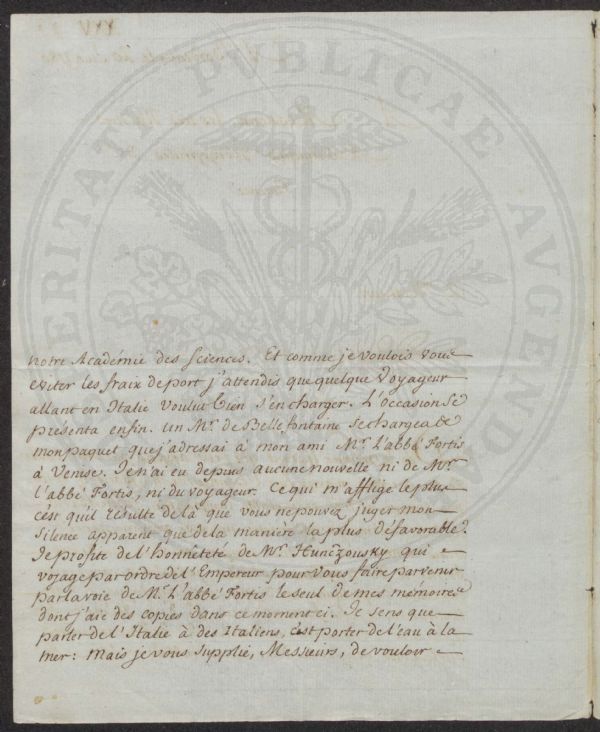 VERITATI PUBLICAE AUGENDAE
notre Académie des Sciences. Et comme je voulois vous
eviter les fraix de port j'attendis que quelque Voyageur
allant en Italie voulut bien s'en charger. L'occasion se
presenta enfin. Un Mr. de Bellefontaine se chargea de
mon paquet que j'adressai à mon ami Mr. l'abbé Fortis
à Venise. Je n'ai eu depuis aucune nouvelle ni de Mr.
l'abbé Fortis, ni du voyageur. Ce qui m'afflige le plus
c'est qu'il résulte de là que vous ne pouvez juger mon
silence apparent que de la manière la plus défavorable.
Je profite de l'honnêteté de Mr. Hunczousky qui
voyage par ordre de l'Empereur pour vous faire parvenir
par la voie de Mr. l'abbé Fortis le seul de mes mémoires
dont j'aie des copies dans ce moment ci. Je sens que
parler de l'Italie à des Italiens, c'est porter de l'eau à la
mer: mais je vous supplie, Messieurs, de vouloir